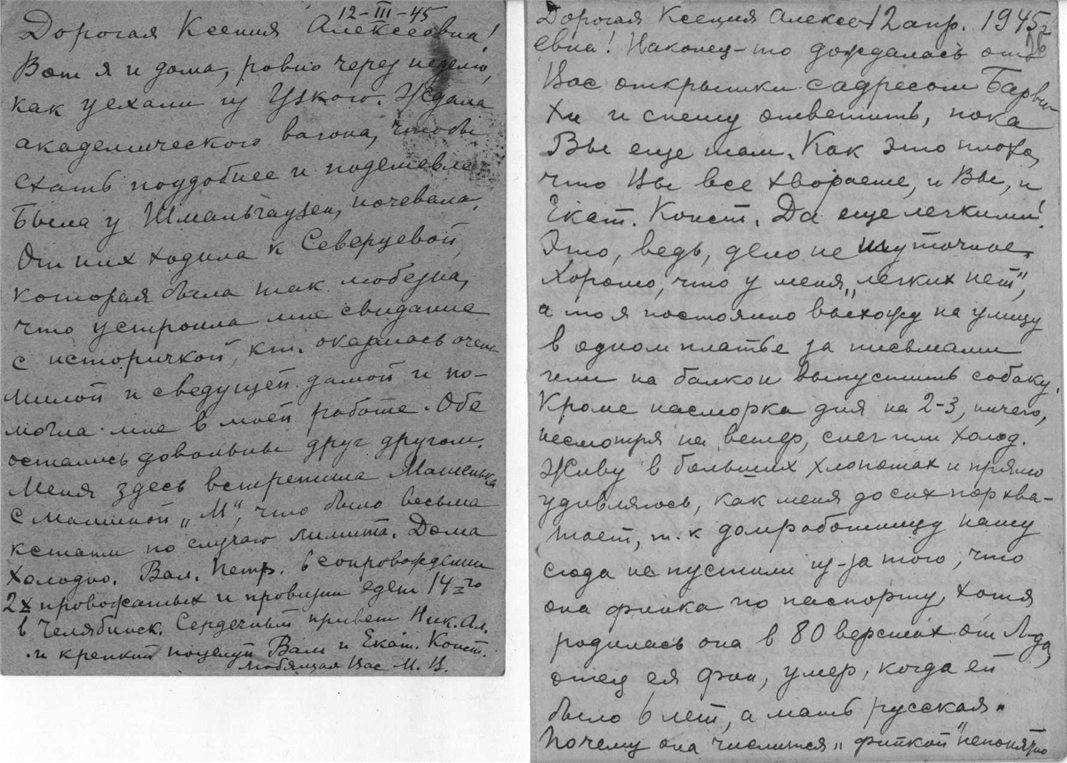 12-III-45
Дорогая Ксения Алексеевна!
Вот я и дома, ровно через неделю,
как уехали из Узкого. Ждала
академического вагона, чтобы
ехать поудобнее и подешевле.
Была у Шмальгаузен, ночевала.
От них ходила к Северцевой,
которая была так любезна,
что устроила мне свидание
с историчкой, кт. оказалась очень
милой и сведущей дамой и по-
могла мне в моей работе. Обе
остались довольны друг другом.
Меня здесь встретила Машенька
с машиной „М", что было весьма
кстати по случаю лимита. Дома
холодно. Вал. Петр. в сопровождении
2х провожатых и провизии едет 14го
в Челябинск. Сердечный привет Ник. Ал.
и крепкий поцелуй Вам и Екат. Конст.
Любящая Вас М. В.
12 апр. 1945 г
Дорогая Ксения Алексе-
евна! Наконец-то дождалась от
Вас открытки с адресом Барви-
хи и спешу ответить, пока
Вы еще там. Как это плохо,
что Вы все хвораете, и Вы, и
Екат. Конст. Да еще легкими!
Это, ведь, дело не шуточное.
Хорошо, что у меня „легких нет",
а то я постоянно выхожу на улицу
в одном платье за письмами
или на балкон выпустить собаку.
Кроме насморка дня на 2-3, ничего,
несмотря на ветер, снег или холод.
Живу в больших хлопотах и прямо
удивляюсь, как меня до сих пор хва-
тает, т. к домработницу нашу
сюда не пустили из-за того, что
она финка по паспорту, хотя
родилась она в 80 верстах от Л-да,
отец ея фин, умер, когда ей
было 6 лет, а мать русская.
Почему она числится „финкой" непонятно